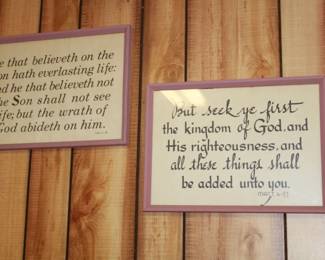 e that believeth on the
on hath everlasting life:
nd he that believeth not
he Son shall not see
ife; but the wrath of
God abideth on him.
But seek ye first
the kingdom of God, and
His righteousness, and
all these things shall
be added unto you.